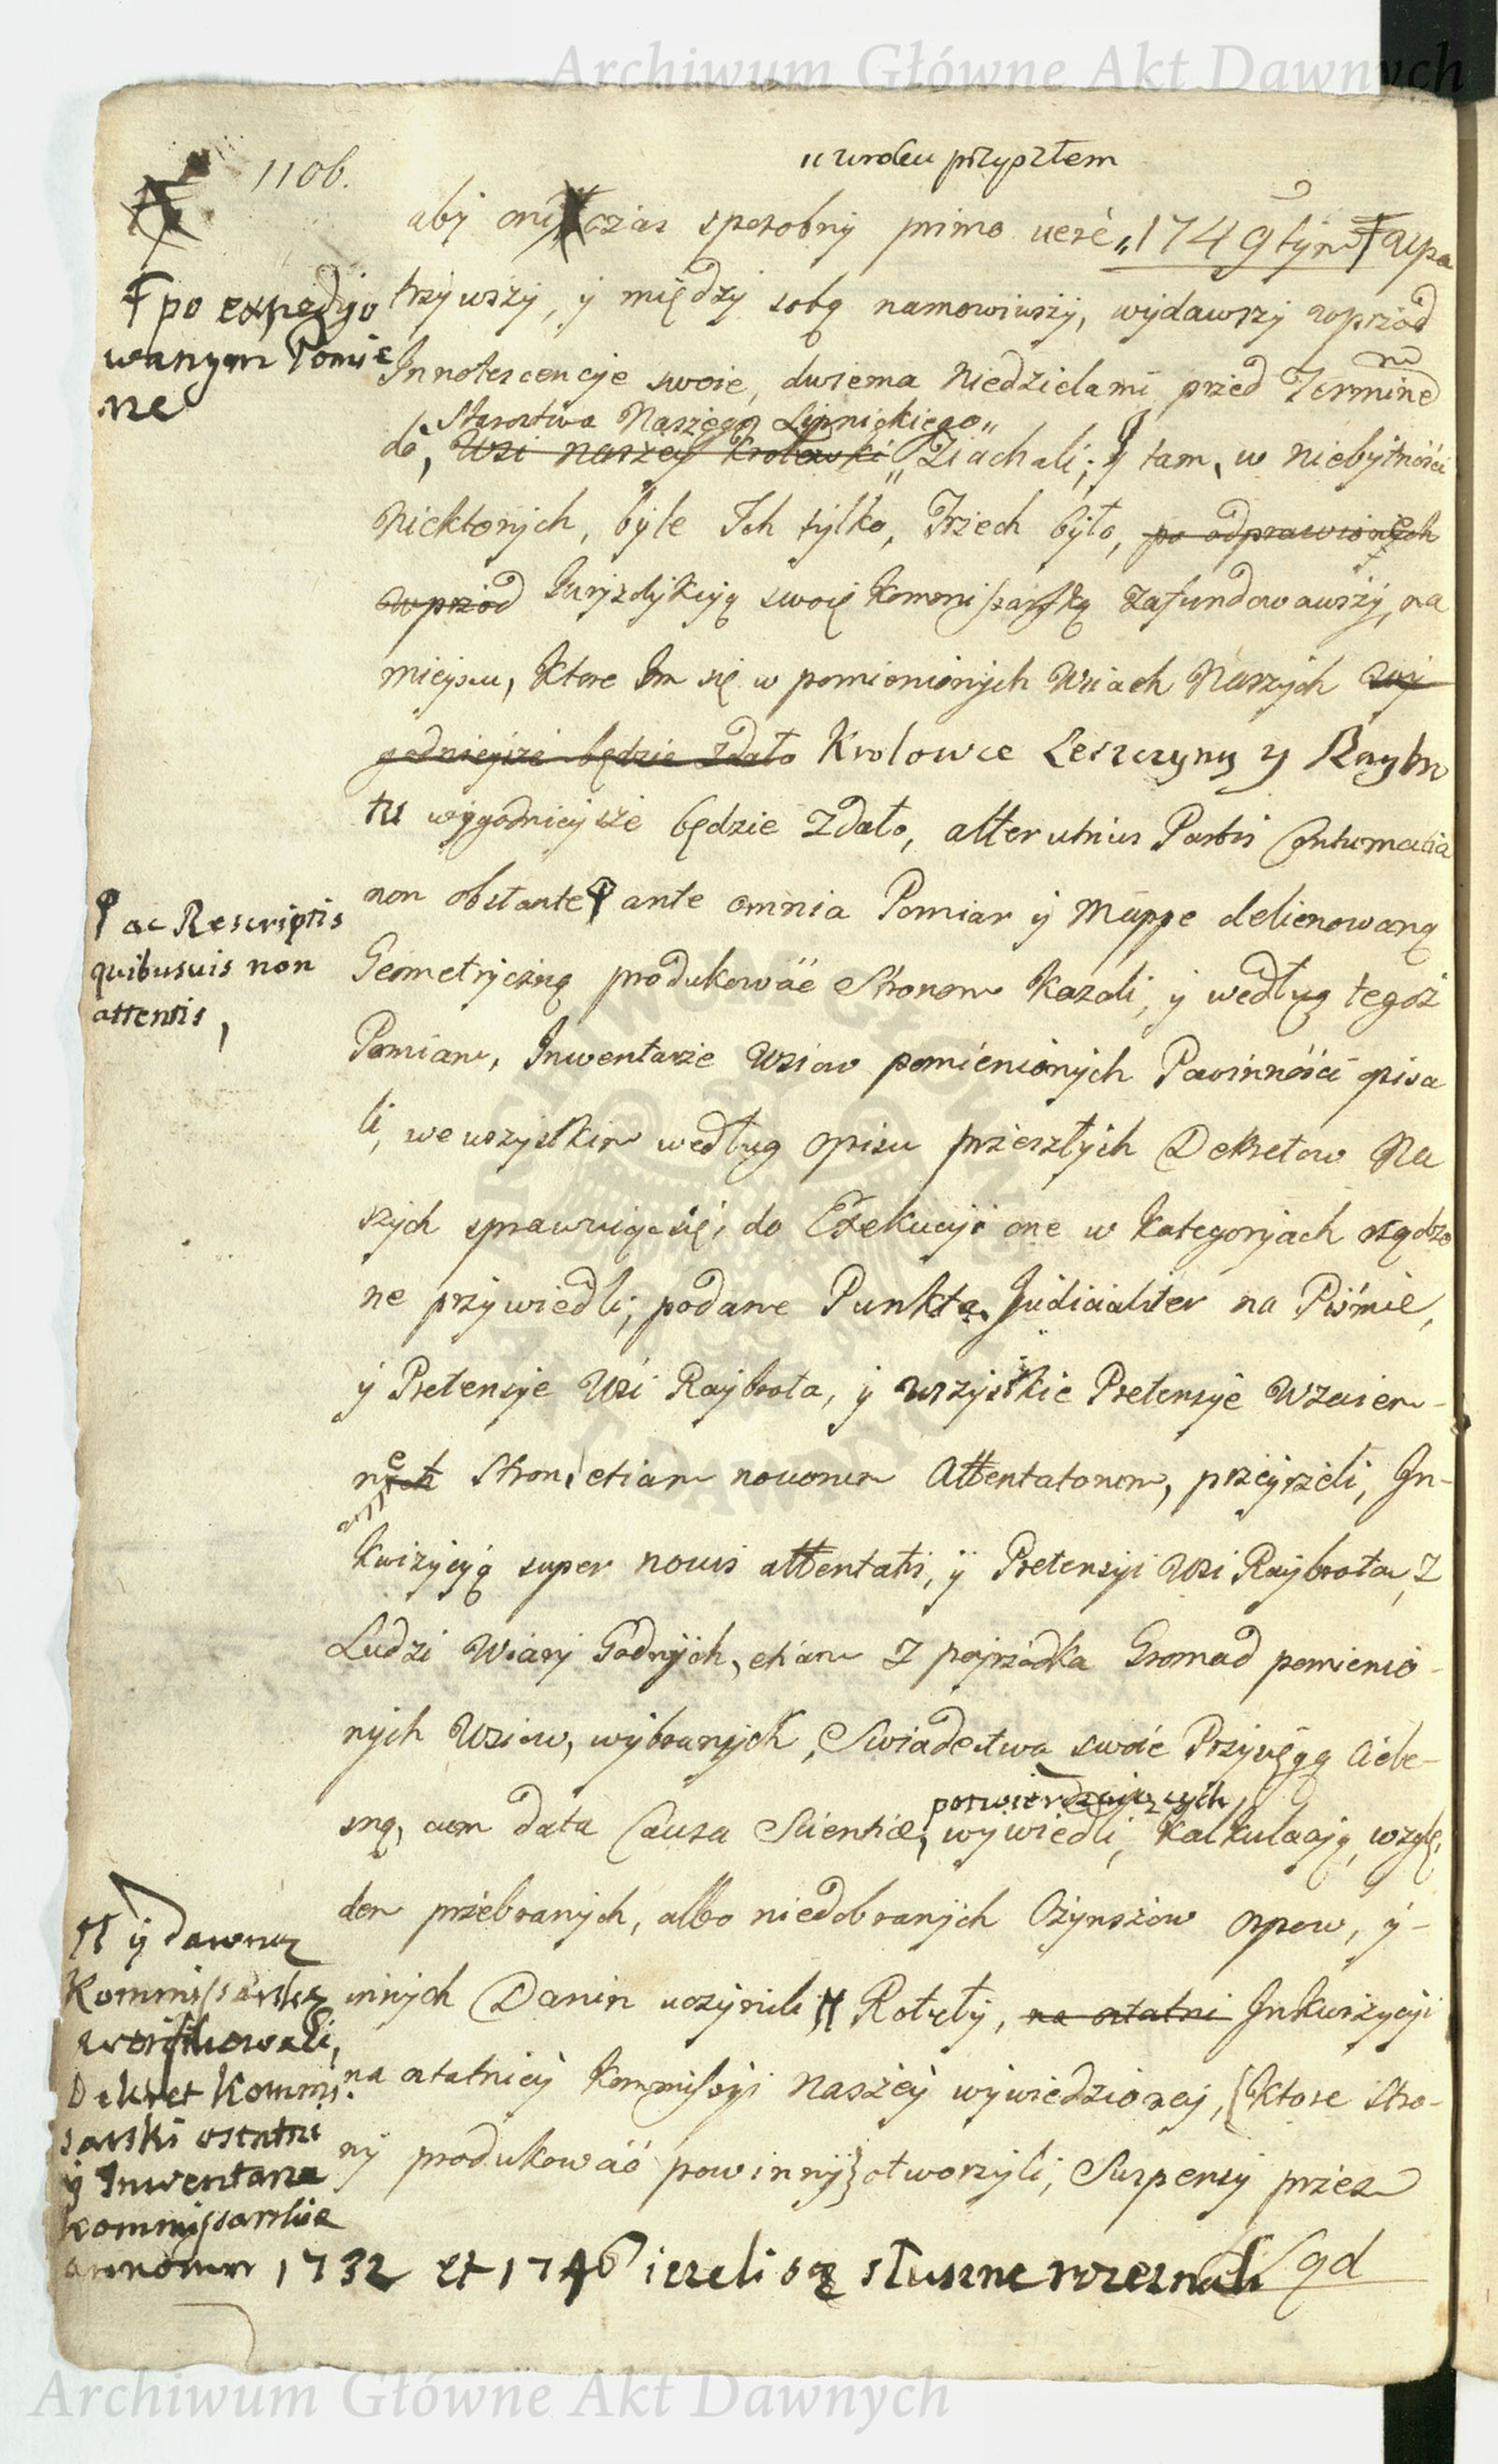 Archiwum Główne Akt Dawnych
1106.
" w roku przyszłem
aby oni czas sposobny primo vere " 1749 tym upa
trzywszy, y między sobą namowiwszy, wydawszy wprzod
Innotescencye swoie, dwiema Niedzielami przed Terminem
Starostwa Naszego Lipnickiego "
do, Wsi naszey Krolowki " Ziachali; y tam, w niebytności
Niektorych, byle Ich tylko, Trzech było, po odprawionych
wprzod Juryzdykcyą swoię Kommissarską zafundowawszy, na
mieyscu, Ktore Im się w pomienionych Wsiach Naszych wy
godnieysze będzie zdało Krolowce Leszczyny y Raybro
tu wygodnieysze będzie zdało, alterutrius Partis Contumacia
non obstante ante omnia Pomiar y Mappę delienowaną
Geometryczną produkować Stronom kazali, y według tegoż
Pomiaru, Inwentarze Wsiow pomienionych Powinności opisa
li, we wszystkim według opisu przeszłych Dekretow Na
szych sprawuiąc się, do Exekucyi one w Kategoryach osądzo
ne przywiedli; podane Punkta Judicialiter na Piśmie,
y Pretensye Wsi Raybrota, y wszystkie Pretensye Wzaiem-
ne Stron, etiam novorum Attentatorum, przeyrzeli, In-
kwizycyą super novis attentatis, y Pretensyi Wsi Raybrota, Z
Ludzi Wiary Godnych, etiam z pojrzodka Gromad pomienio-
nych Wsiow, wybranych, Swiadectwa swoie Przysięgą Ciele-
potwierdzaiących
sną, cum data Causa Scientiæ, wywiedli, Kalkulacyą, wzglę
dem przebranych, albo niedobranych Czynszow Ospow, y-
innych Danin uczynili Rotuły, na ostatni Inkwizycyi
na ostatniey Kommissyi Naszey wywiedzioney, (ktore Stro-
ny produkować powinny) otworzyli, Suspensy przez
Sąd
po expedyio
wanym Pomie
ne
ac Rescriptis
quibusuis non
attentis,
y dawną
Kommissarską
zweryfikowali,
Dekret Kommis
sarski ostatni
y Inwentarze
Kommissarskie
annorum 1732 et 1746 ieżeli są słuszne rozeznali
Archiwum Główne Akt Dawnych